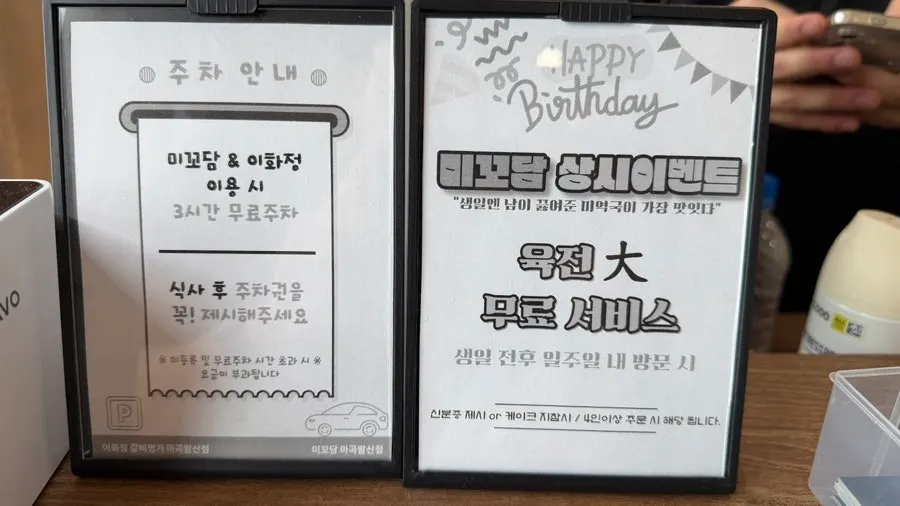 주차 안내
미꼬담 & 이화정
이용 시
3시간 무료주차
식사 후 주차권을
꼭! 제시해주세요
※ 미등록 및 무료주차 시간 초과 시 ※
요금이 부과됩니다
P
이화정 갈빅명가 마곡발산점
미꼬담 마곡발산점
HAPPY
Birthday
미꼬담 상시이벤트
"생일엔 남이 끓여준 미역국이 가장 맛잇다"
육전 大
무료 서비스
생일 전후 일주일 내 방문 시
신분증 제시 or 케이크 지참시 / 4인이상 주문 시 해당 됩니다.